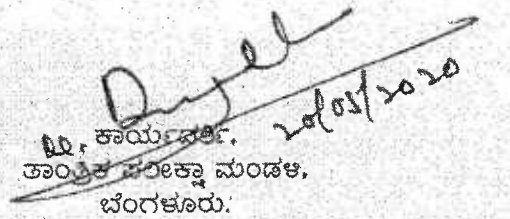 20/03/2020
ಕಾರ್ಯದರ್ಶಿ,
ತಾಂತ್ರಿಕ ಪರೀಕ್ಷಾ ಮಂಡಳಿ,
ಬೆಂಗಳೂರು.